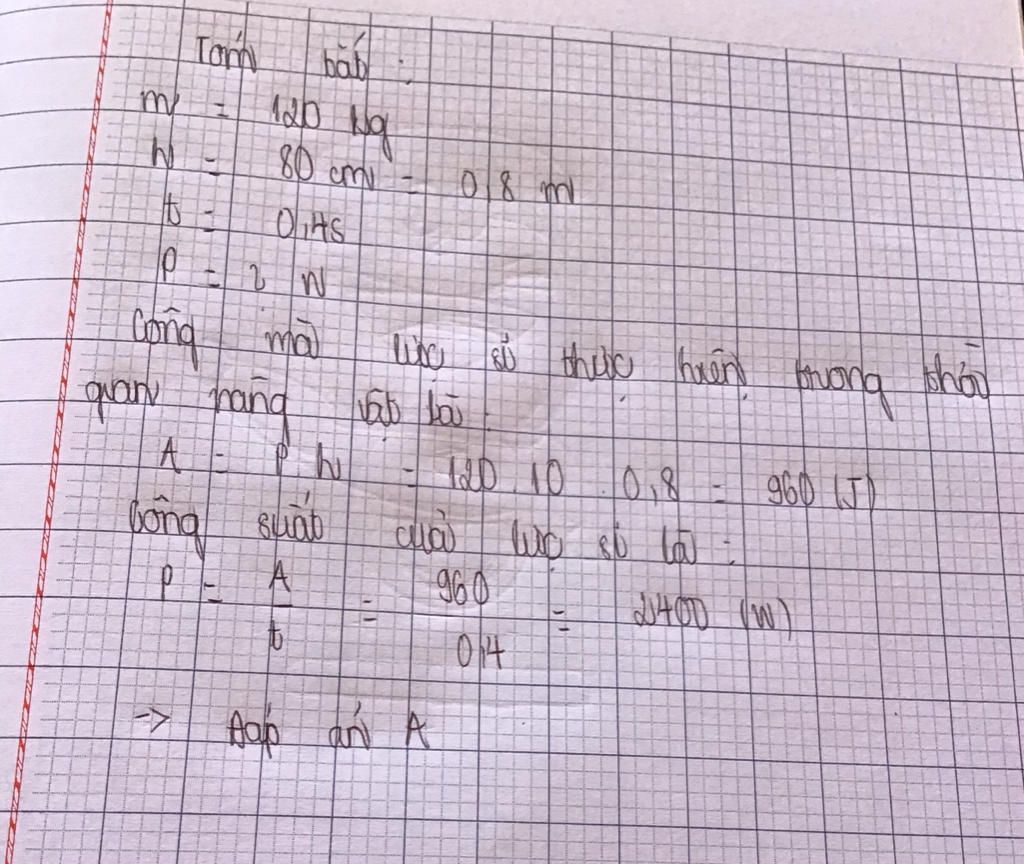 Tóm tắt :
m = 120 kg
h = 80 cm = 0,8 m
t = 0,4s
P = ? W
Công mà lực sĩ thực hiện trong thời
gian nâng vật là :
A = P h = 120 . 10 . 0,8 = 960 (J)
Công suất của lực sĩ là :
P = A / t = 960 / 0,4 = 2400 (W)
-> Đáp án A